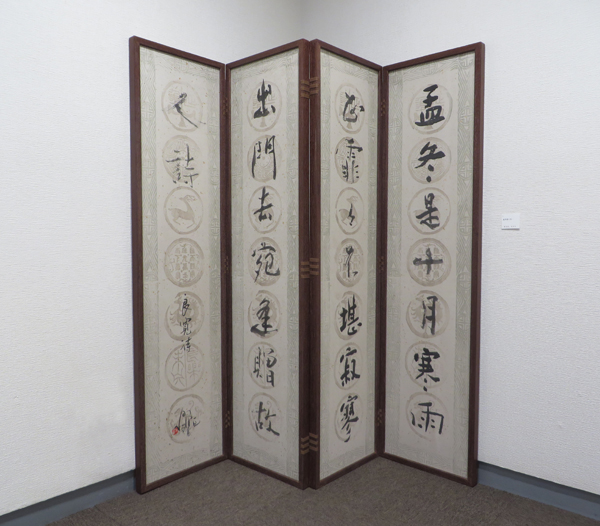 孟冬是十月寒雨
霏々不堪寂寥
出門去宛逢贈故
詩
良寛詩